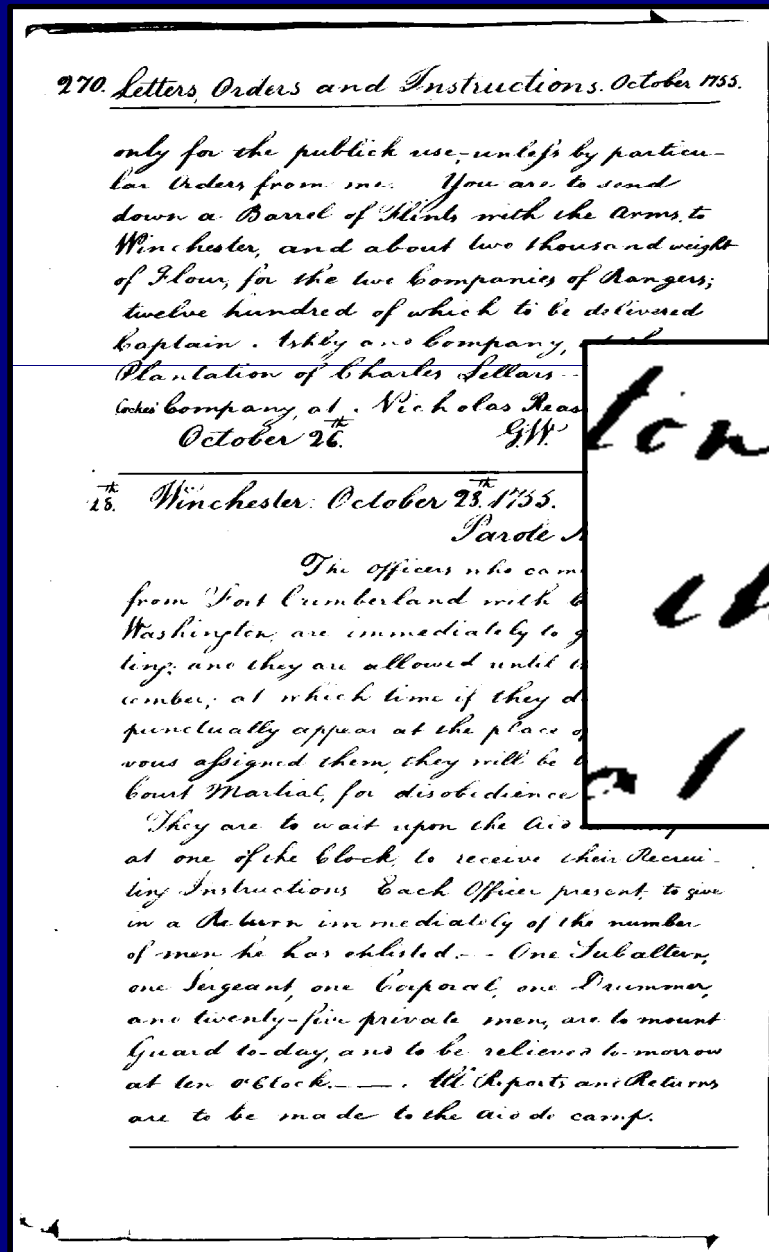 270. Letters, Orders and Instructions. October 1755.
only for the publick use, unless by particu-
lar Orders from me. You are to send
down a Barrel of Flints with the Arms, to
Winchester, and about two thousand weight
of Flour, for the two Companies of Rangers;
twelve hundred of which to be delivered
Captain. Ashby and Company,
Plantation of Charles Sellars --
Cockes Company, at. Nicholas
October 26th. G.W.
28th. Winchester: October 28th. 1755.
Parole
The Officers who
from Fort Cumberland with
Washington, are immediately to
ting; and they are allowed until
cember; at which time if they
punctually appear at the place
vous assigned them, they will be
Court Martial, for disobedience
They are to wait upon the Aid
at one of the Clock, to receive their Recrui-
ting Instructions Each Officer present, to give
in a Return immediately of the number
of men he has enlisted. -- One Subaltern,
one Sergeant, one Corporal, one Drummer,
and twenty-five private men, are to mount
Guard to-day, and to be relieved to-morrow
at ten o'Clock. -- . All Reports and Returns
are to be made to the aid de camp.